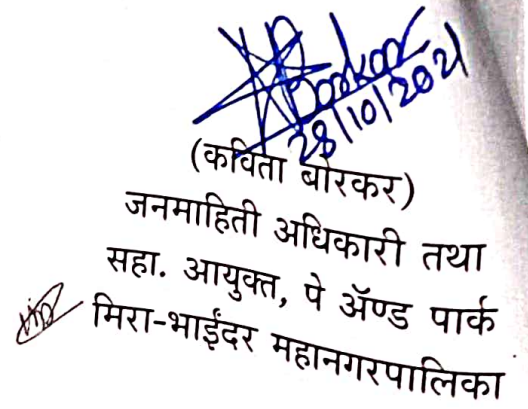 Borkar
28/10/2021
(कविता बोरकर)
जनमाहिती अधिकारी तथा
सहा. आयुक्त, पे ॲण्ड पार्क
मिरा-भाईंदर महानगरपालिका